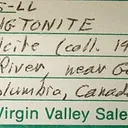 S-LL
NGTONITE
lcite (coll. 19
River, near G
olumbia, Canad
Virgin Valley Sale